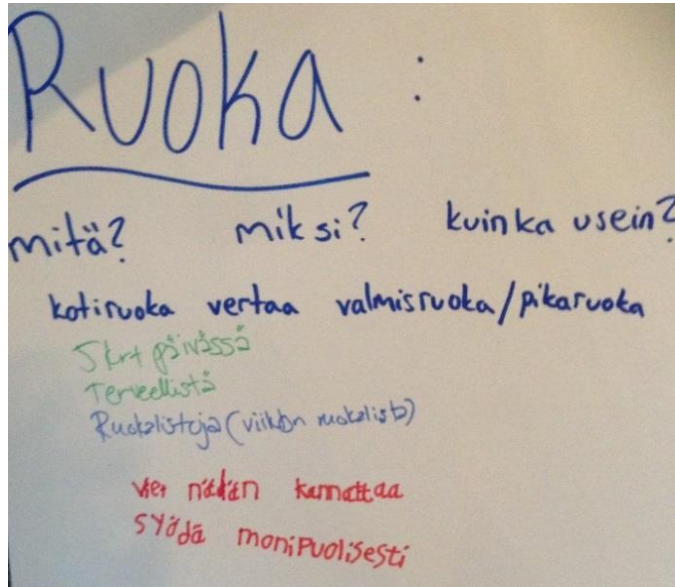 Ruoka :
mitä? miksi? kuinka usein?
kotiruoka vertaa valmisruoka/pikaruoka
5krt päivässä
Terveellistä
Ruokalistoja (viikon ruokalista)
vie nälän kannattaa
syödä monipuolisesti